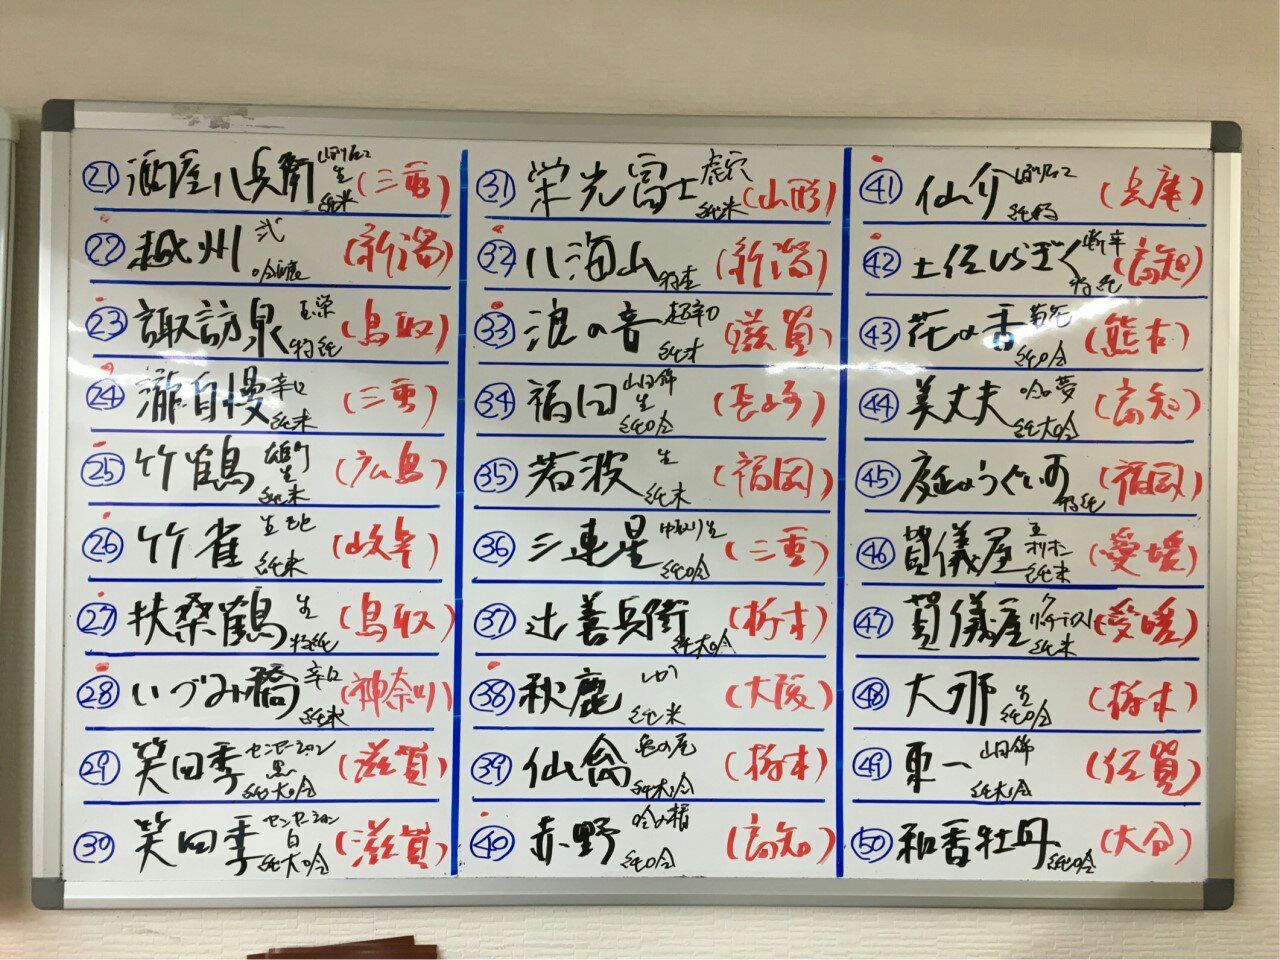 ㉑ 酒屋八兵衛 山廃 生 純米 (三重)
㉒ 越州 弐 吟醸 (新潟)
㉓ 諏訪泉 玉栄 特純 (鳥取)
㉔ 瀧自慢 辛口 純米 (三重)
㉕ 竹鶴 雄町 生 純米 (広島)
㉖ 竹雀 生もと 純米 (岐阜)
㉗ 扶桑鶴 生 特純 (鳥取)
㉘ いづみ橋 辛口 純米 (神奈川)
㉙ 笑四季 センセーション 黒 純大吟 (滋賀)
㉚ 笑四季 センセーション 白 純大吟 (滋賀)
㉛ 栄光冨士 虎穴 純米 (山形)
㉜ 八海山 特本 (新潟)
㉝ 浪の音 超辛口 純米 (滋賀)
㉞ 福田 山田錦 生 純吟 (長崎)
㉟ 若波 生 純米 (福岡)
㊱ 三連星 中取り生 純吟 (三重)
㊲ 辻善兵衛 純大吟 (栃木)
㊳ 秋鹿 しか 純米 (大阪)
㊴ 仙禽 亀の尾 純大吟 (栃木)
㊵ 赤野 吟の精 純吟 (高知)
㊶ 仙介 純吟 (兵庫)
㊷ 土佐しらぎく 斬辛 特純 (高知)
㊸ 花の香 菊花 純吟 (熊本)
㊹ 美丈夫 吟の夢 純大吟 (高知)
㊺ 庭のうぐいす 特純 (福岡)
㊻ 賀儀屋 純米 (愛媛)
㊼ 賀儀屋 純米 (愛媛)
㊽ 大那 生 純吟 (栃木)
㊾ 東一 山田錦 純大吟 (佐賀)
㊿ 和香牡丹 純吟 (大分)